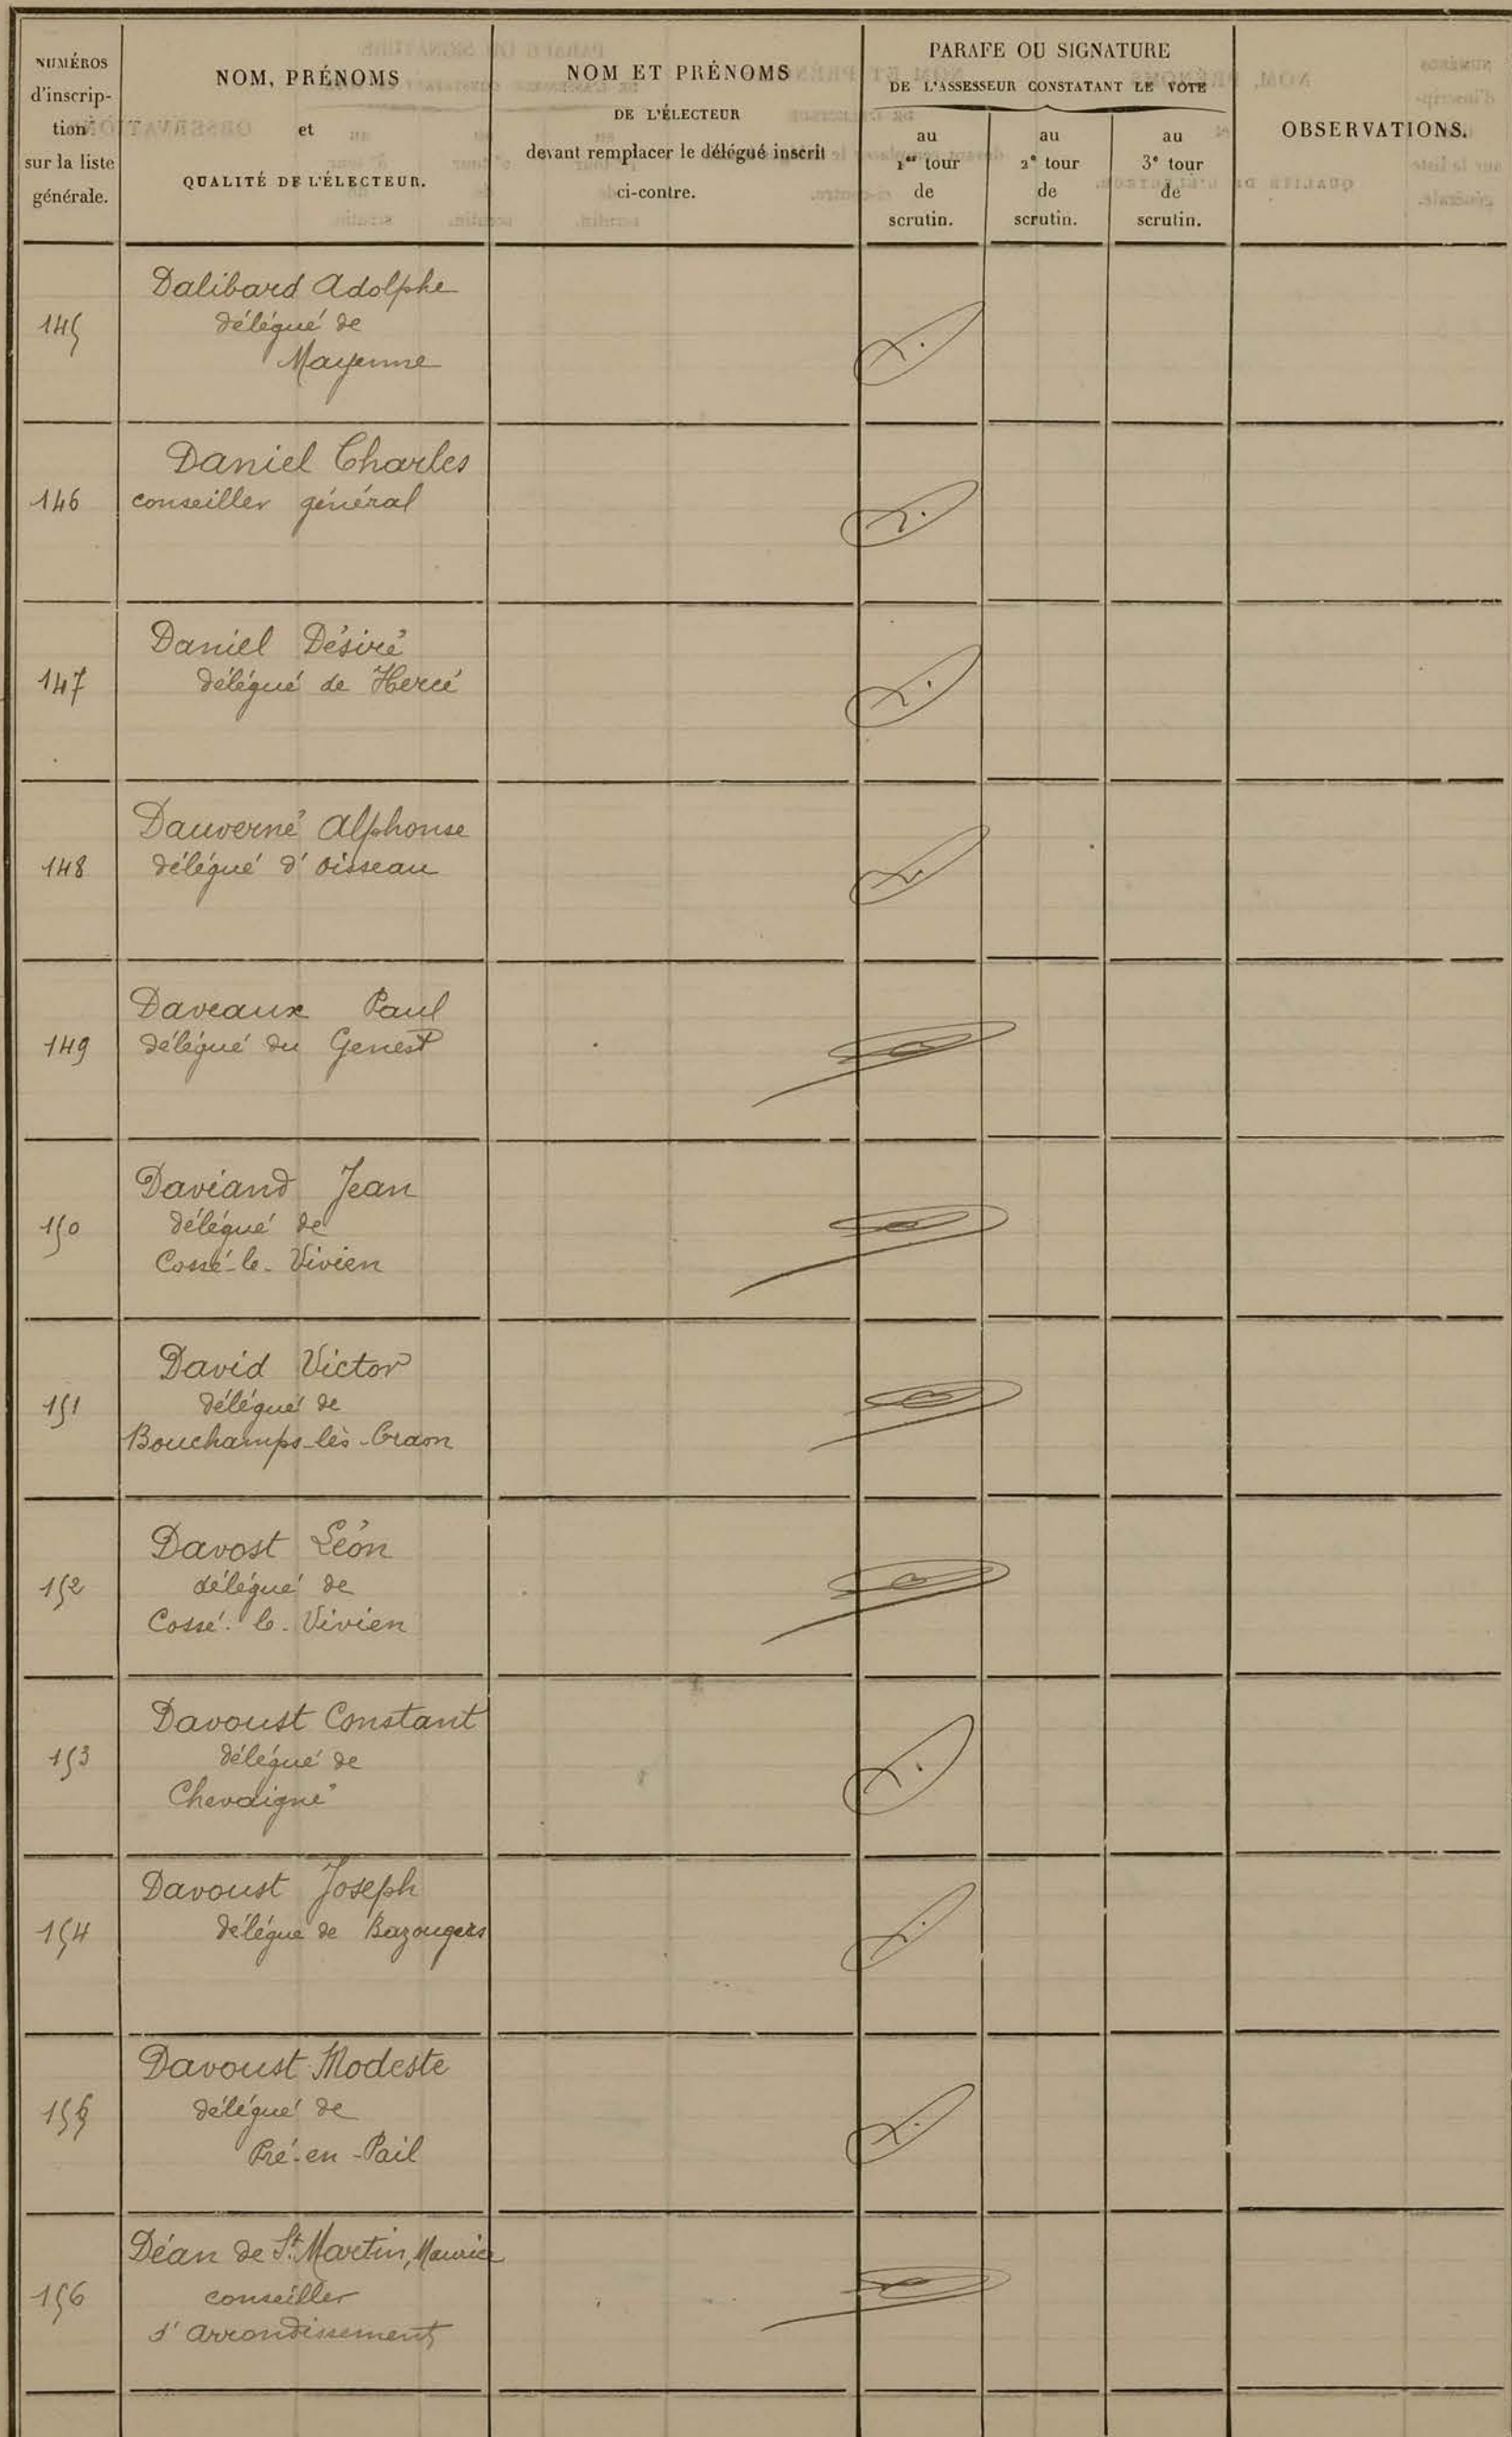 NUMÉROS
d'inscrip-
tion
sur la liste
générale.
NOM, PRÉNOMS
et
QUALITÉ DE L'ÉLECTEUR.
NOM ET PRÉNOMS
DE L'ÉLECTEUR
devant remplacer le délégué inscrit
ci-contre.
PARAFE OU SIGNATURE
DE L'ASSESSEUR CONSTATANT LE VOTE
au
1er tour
de
scrutin.
au
2e tour
de
scrutin.
au
3e tour
de
scrutin.
OBSERVATIONS.
Dalibard Adolphe
145 délégué de
Mayenne
Daniel Charles
146 conseiller général
Daniel Désiré
147 délégué de Hercé
Dauverné Alphonse
148 délégué d'Oisseau
Daveaux Paul
149 délégué du Genest
Daviand Jean
150 délégué de
Cossé-le-Vivien
David Victor
151 délégué de
Bouchamps-lès-Craon
Davost Léon
152 délégué de
Cossé-le-Vivien
Davoust Constant
153 délégué de
Chevaigné
Davoust Joseph
154 délégué de Bazougers
Davoust Modeste
155 délégué de
Pré-en-Pail
Déan de St Martin, Maurice
156 conseiller
d'arrondissement